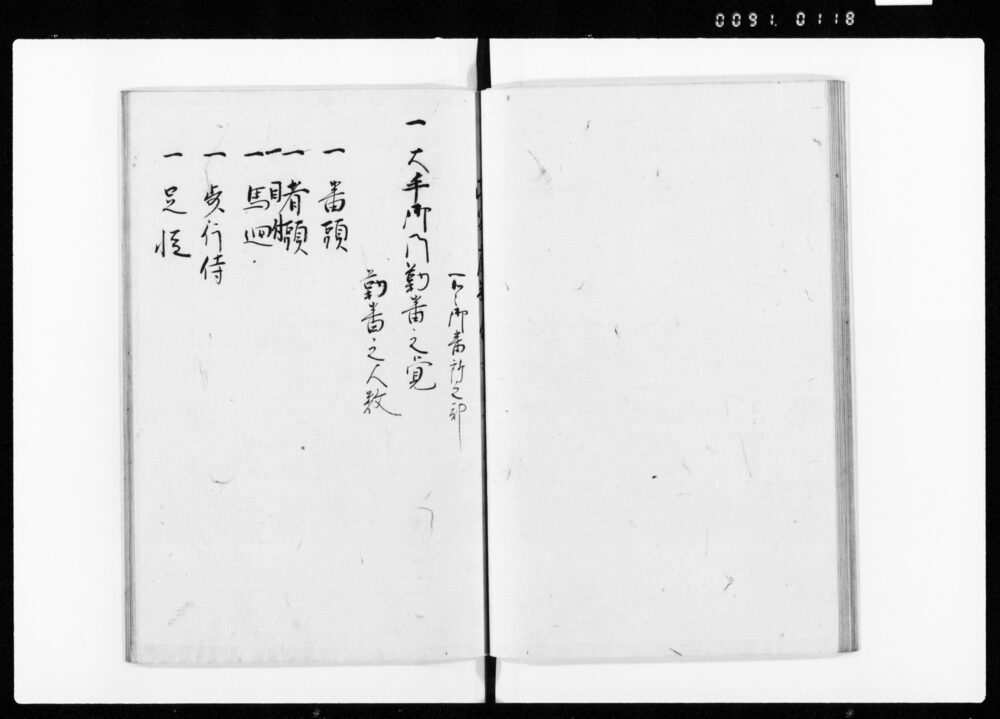 0091.0118
御番所之部
一 大手御門勤番之覚
勤番之人数
一 番頭
一 者頭
一 目付
一 馬廻
一 歩行侍
一 足軽